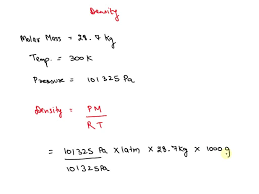 Density
Molar Mass = 28.7 kg
Temp. = 300 K
Pressure = 101325 Pa
Density = PM
RT
= 101325 Pa × 1atm × 28.7kg × 1000 g
101325Pa